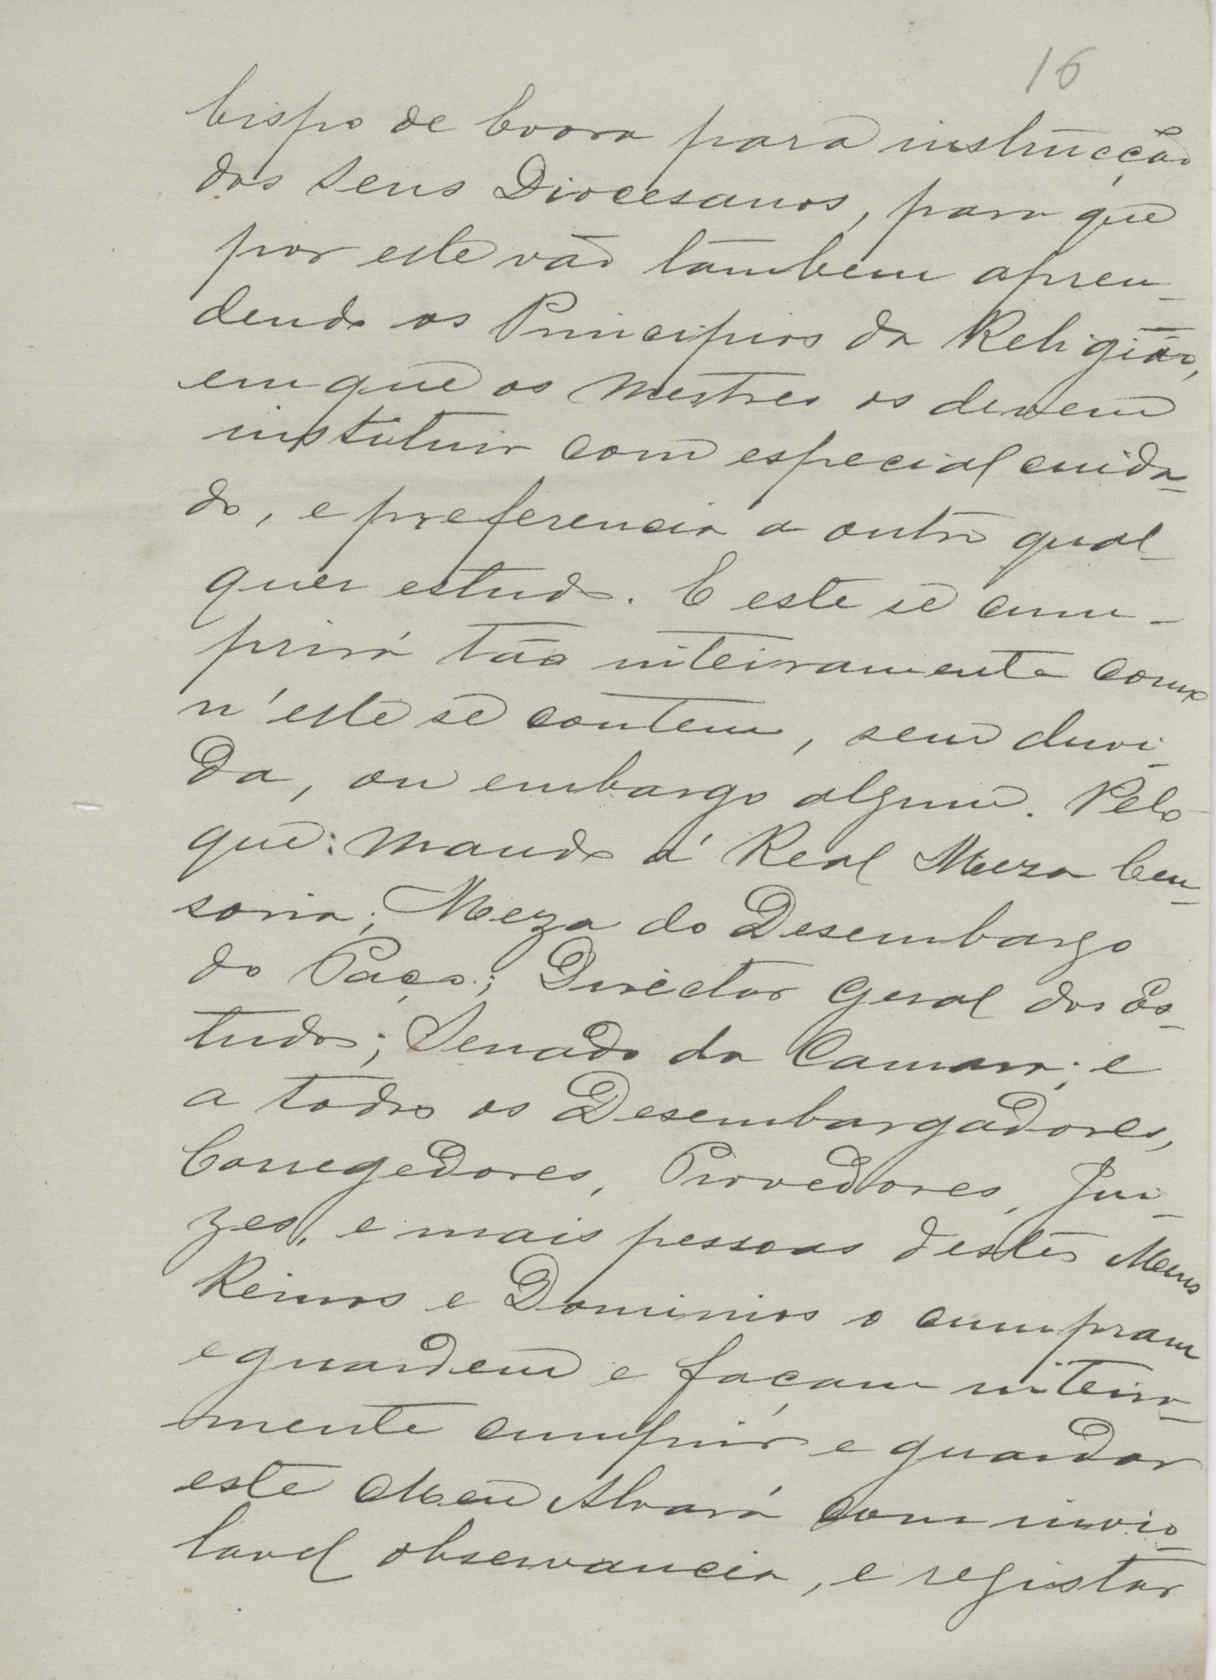 16
bispo de Evora para instrucção
dos seus Diocesanos, para que
por elle vão tambem apren-
dendo os Principios da Religião,
em que os Mestres os devem
instituir com especial cuida-
do, e preferencia a outro qual-
quer estudo. E este se cum-
prirá tão inteiramente como
n'elle se contem, sem duvi-
da, ou embargo algum. Pelo
que: Mando á Real Meza Cen-
soria; Meza do Desembargo
do Paço; Director Geral dos Es-
tudos; Senado da Camara; e
a todos os Desembargadores,
Corregedores, Provedores, Jui-
zes, e mais pessoas destes Meus
Reinos e Dominios o cumpram
e guardem e façam inteira-
mente cumprir e guardar
este Meu Alvará com invio-
lavel observancia, e registar